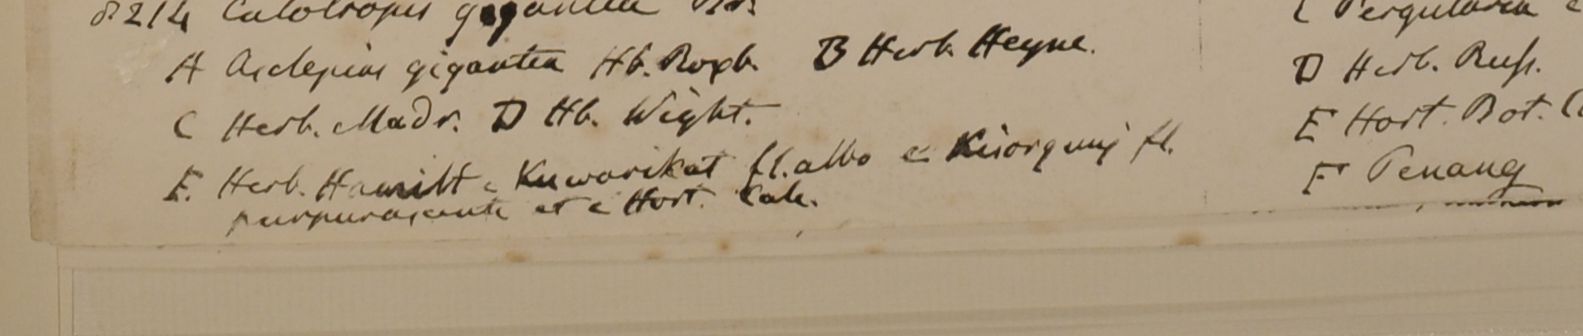 8214 Calotropis gigantea Br.
A Asclepias gigantea Hb. Roxb. B Herb. Heyne.
C Herb. Madr. D Hb. Wight.
E. Herb. Hamilt e Kuwarikat fl. albo e Kisorgunj fl.
purpurascente et e Hort. Calc.
C Pergularia
D Herb. Russ.
E Hort. Bot.
F Penang